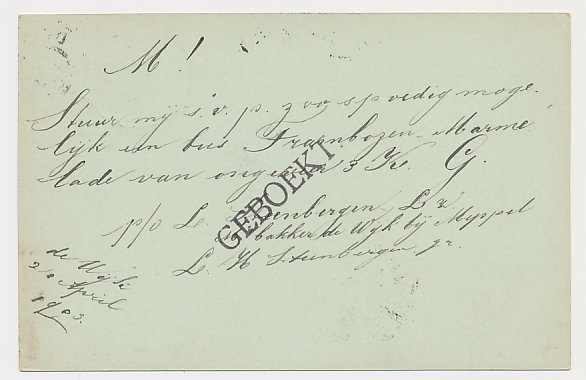 M!
Stuur mij s.v.p. zoo spoedig moge-
lijk een bus Frambozen-Marme-
lade van ongeveer 3 K. G.
p/o L. Steenbergen Lz
bakker de Wijk bij Meppel
L. H. Steenbergen jr.
de Wijk
20 April
1903.
GEBOEKT